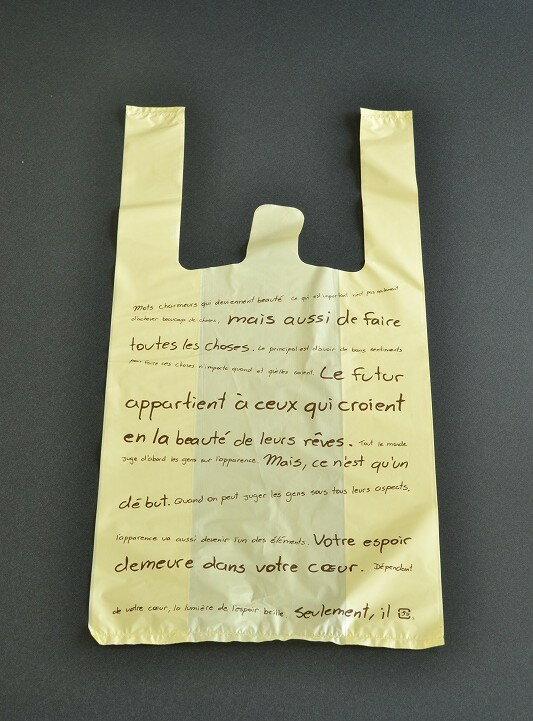 Mots charmeurs qui deviennent beauté. Ce qui est important n'est pas seulement
d'achever beaucoup de choses, mais aussi de faire
toutes les choses. Le principal est d'avoir de bons sentiments
pour faire ces choses n'importe quand et quelles soient. Le futur
appartient à ceux qui croient
en la beauté de leurs rêves. Tout le monde
juge d'abord les gens sur l'apparence. Mais, ce n'est qu'un
début. Quand on peut juger les gens sous tous leurs aspects,
l'apparence va aussi devenir l'un des éléments. Votre espoir
demeure dans votre cœur. Dépendant
de votre cœur, la lumière de l'espoir brille. Seulement, il